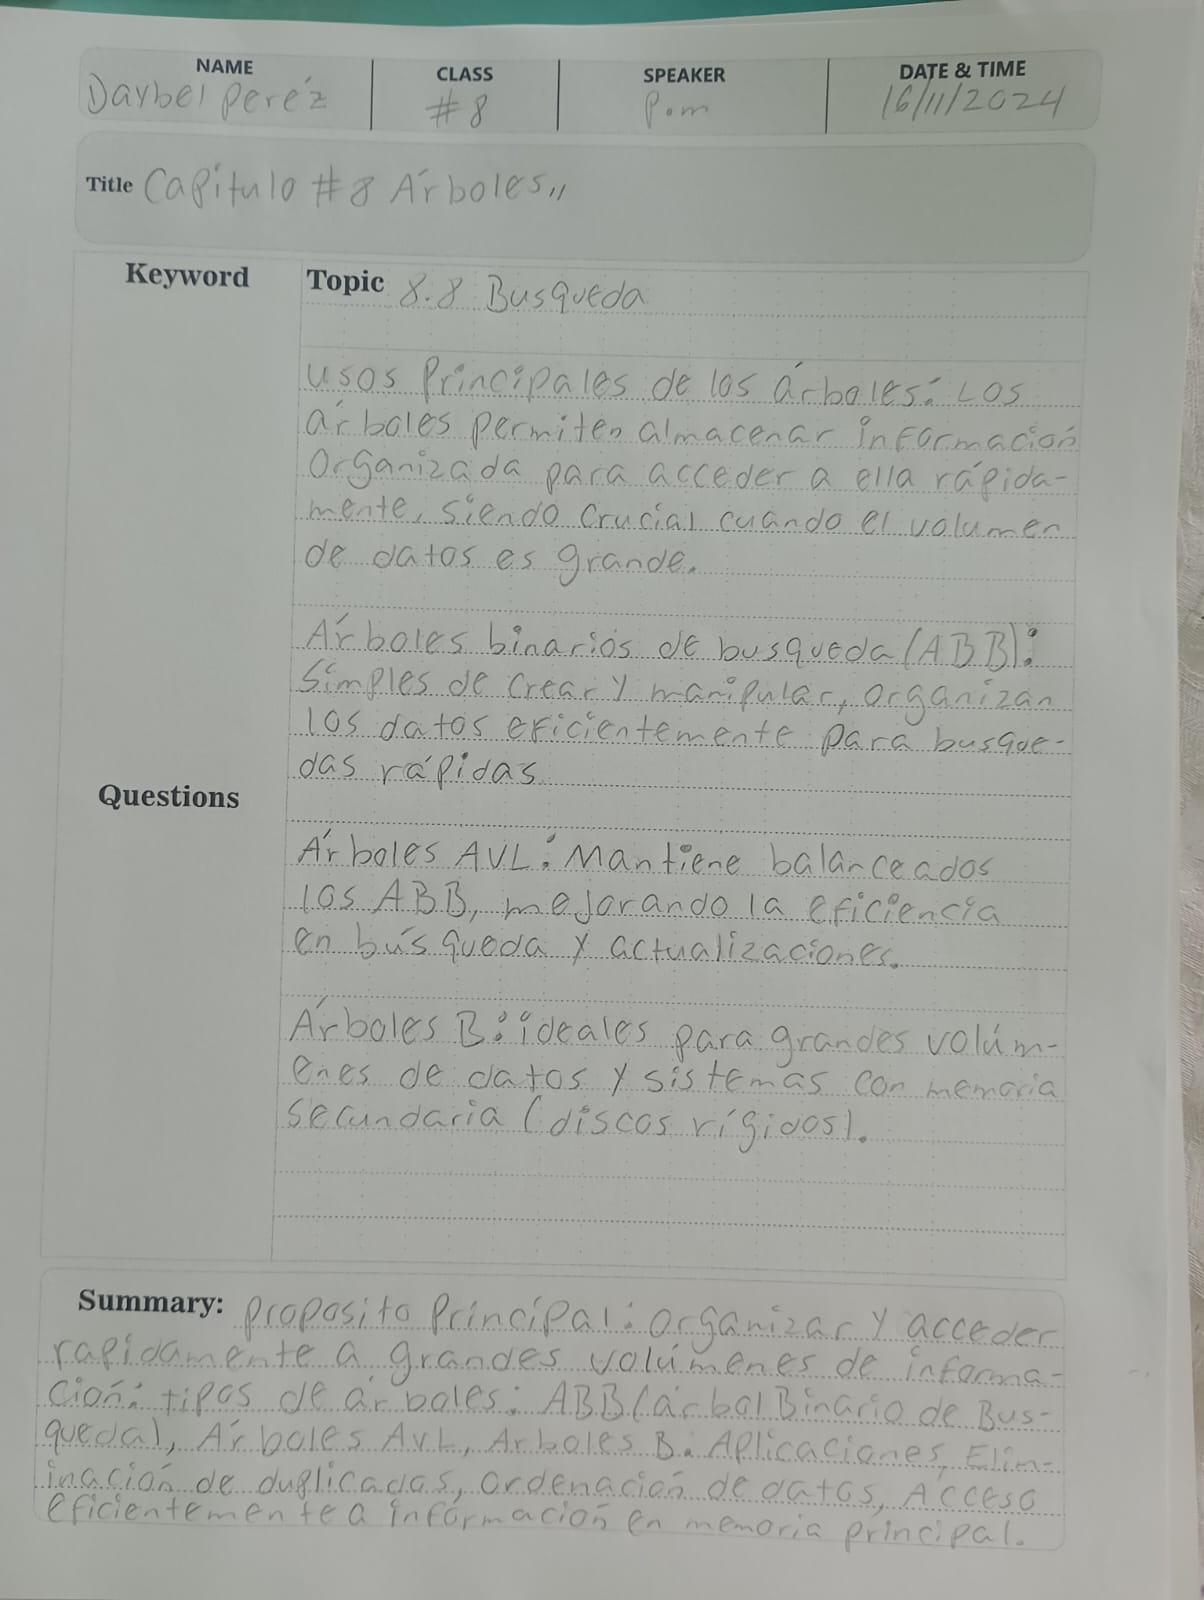 NAME CLASS SPEAKER DATE & TIME
Daybel pérez #8 P.m 16/11/2024
Title Capítulo #8 Árboles,,
Keyword Topic 8.8 Busqueda
usos Principales de los árboles: Los
árboles permiten almacenar información
Organizada para acceder a ella rápida-
mente, siendo crucial cuando el volumen
de datos es grande.
Árboles binarios de busqueda (ABB):
Simples de crear y manipular, organizan
los datos eficientemente para busque-
das rápidas
Questions
Árboles AVL: Mantiene balanceados
los ABB, mejorando la eficiencia
en búsqueda y actualizaciones.
Árboles B: ideales para grandes volúm-
enes de datos y sistemas con memoria
secundaria (discos rígidos).
Summary: proposito Principal: organizar y acceder
rapidamente a grandes volúmenes de informa-
ción: tipos de árboles: ABB (árbol Binario de Bus-
queda), Árboles AVL, Arboles B. Aplicaciones, Elim-
inación de duplicadas, ordenación de datos, Acceso
eficientemente a información en memoria principal.